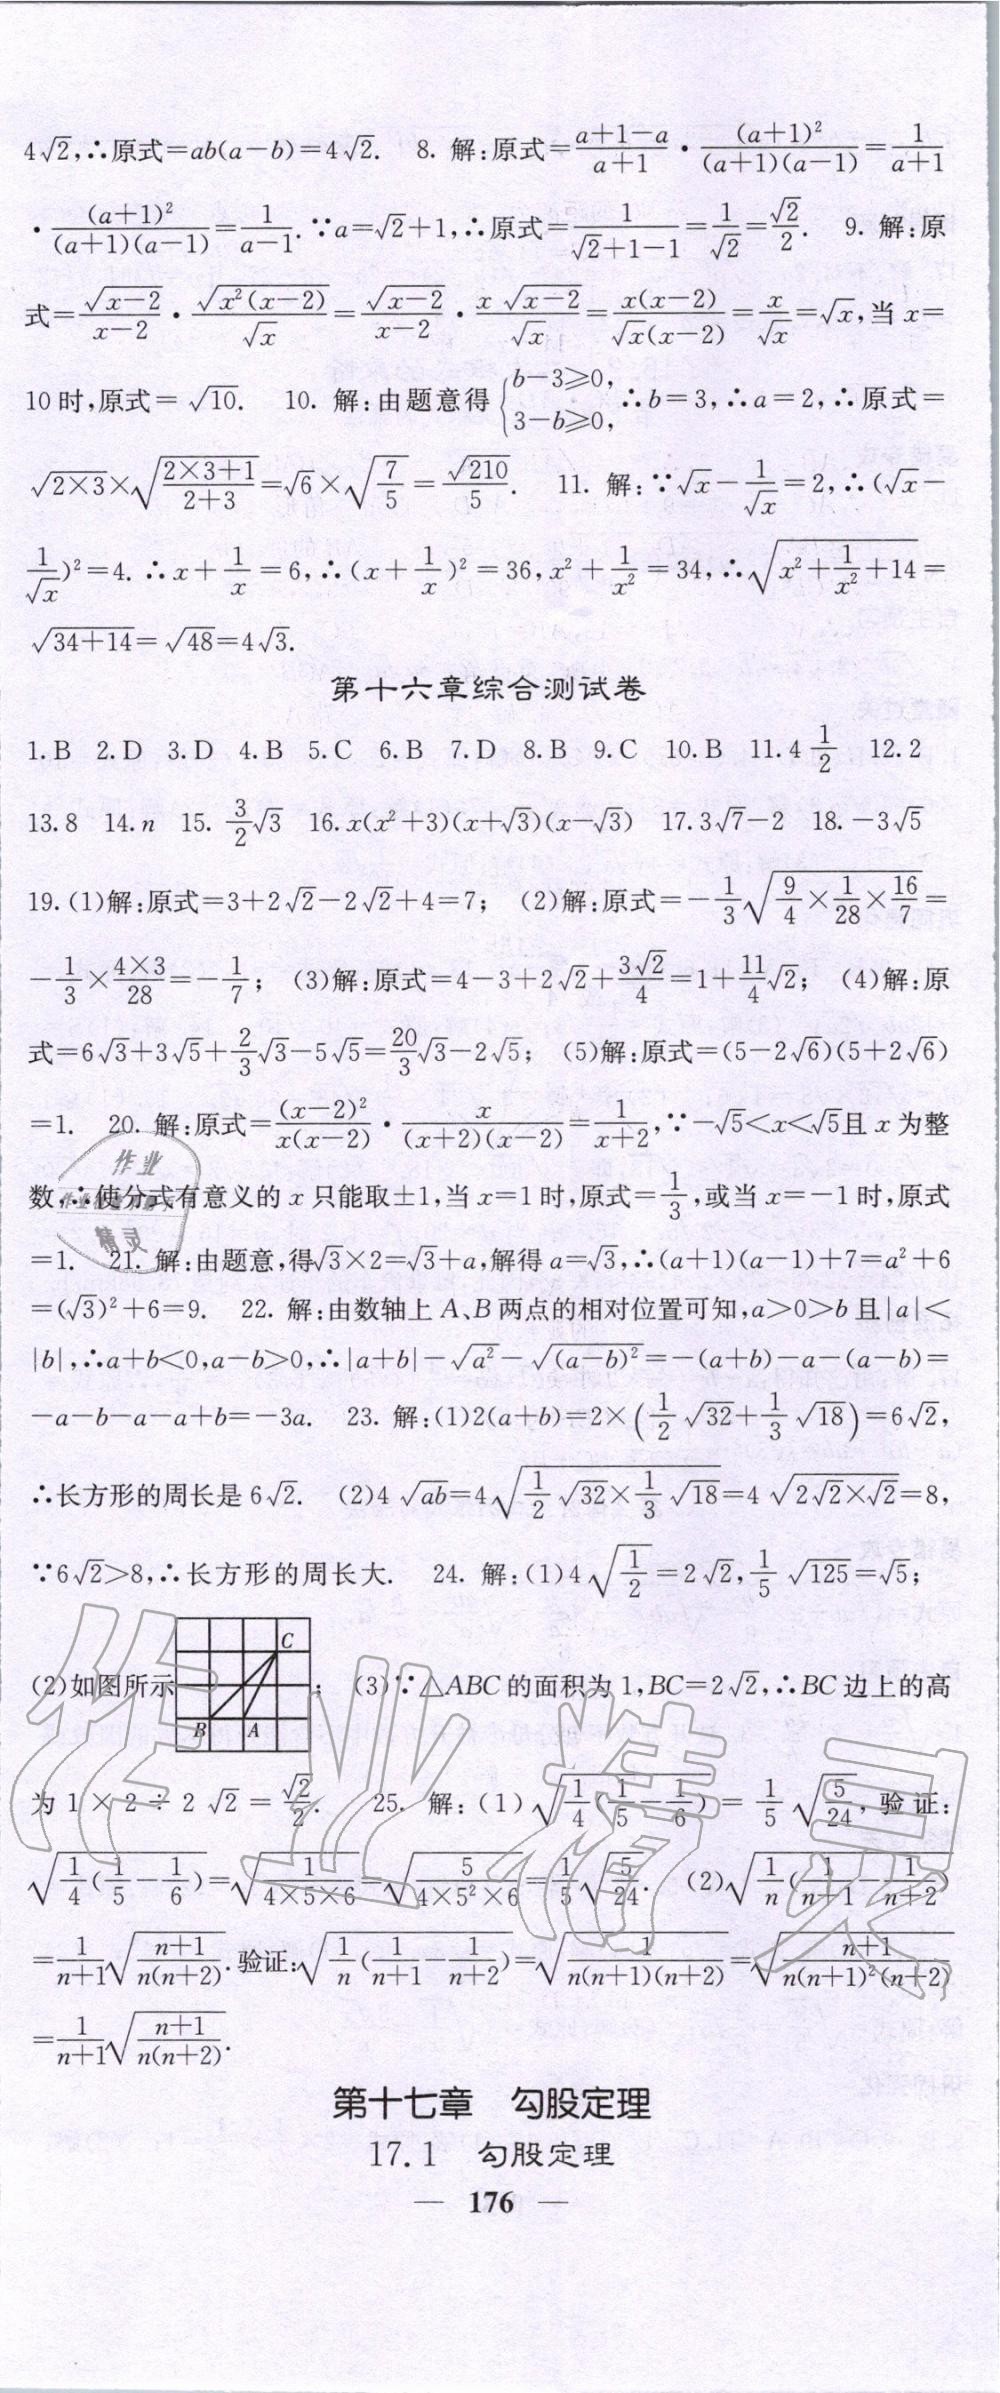 4√2,∴原式=ab(a-b)=4√2. 8. 解:原式=(a+1-a)/(a+1)·(a+1)²/((a+1)(a-1))=1/(a+1)
·(a+1)²/((a+1)(a-1))=1/(a-1).∵a=√2+1,∴原式=1/(√2+1-1)=1/√2=√2/2. 9. 解:原
式=√(x-2)/(x-2)·√(x²(x-2))/√x=√(x-2)/(x-2)·x√(x-2)/√x=x(x-2)/(√x(x-2))=x/√x=√x,当x=
10时,原式=√10. 10. 解:由题意得{b-3≥0, 3-b≥0, ∴b=3,∴a=2,∴原式=
√(2×3)×√((2×3+1)/(2+3))=√6×√(7/5)=√210/5. 11. 解:∵√x-1/√x=2,∴(√x-
1/√x)²=4.∴x+1/x=6,∴(x+1/x)²=36,x²+1/x²=34,∴√(x²+1/x²+14)=
√(34+14)=√48=4√3.
第十六章综合测试卷
1.B 2.D 3.D 4.B 5.C 6.B 7.D 8.B 9.C 10.B 11.4 1/2 12.2
13.8 14.n 15. 3/2√3 16.x(x²+3)(x+√3)(x-√3) 17.3√7-2 18.-3√5
19.(1)解:原式=3+2√2-2√2+4=7; (2)解:原式=-1/3√(9/4×1/28×16/7)=
-1/3×(4×3)/28=-1/7; (3)解:原式=4-3+2√2+3√2/4=1+11/4√2; (4)解:原
式=6√3+3√5+2/3√3-5√5=20/3√3-2√5; (5)解:原式=(5-2√6)(5+2√6)
=1. 20. 解:原式=(x-2)²/(x(x-2))·x/((x+2)(x-2))=1/(x+2),∵-√5<x<√5且x为整
数,∴使分式有意义的x只能取±1,当x=1时,原式=1/3,或当x=-1时,原式
=1. 21. 解:由题意,得√3×2=√3+a,解得a=√3,∴(a+1)(a-1)+7=a²+6
=(√3)²+6=9. 22. 解:由数轴上A、B两点的相对位置可知,a>0>b且|a|<
|b|,∴a+b<0,a-b>0,∴|a+b|-√a²-√(a-b)²=-(a+b)-a-(a-b)=
-a-b-a-a+b=-3a. 23. 解:(1)2(a+b)=2×(1/2√32+1/3√18)=6√2,
∴长方形的周长是6√2. (2)4√ab=4√(1/2√32×1/3√18)=4√(2√2×√2)=8,
∵6√2>8,∴长方形的周长大. 24. 解:(1)4√(1/2)=2√2,1/5√125=√5;
C
(2)如图所示; (3)∵△ABC的面积为1,BC=2√2,∴BC边上的高
B A
为1×2÷2√2=√2/2. 25. 解:(1)√(1/4(1/5-1/6))=1/5√(5/24),验证:
√(1/4(1/5-1/6))=√(1/(4×5×6))=√(5/(4×5²×6))=1/5√(5/24). (2)√(1/n(1/(n+1)-1/(n+2)))
=1/(n+1)√((n+1)/(n(n+2))).验证:√(1/n(1/(n+1)-1/(n+2)))=√(1/(n(n+1)(n+2)))=√((n+1)/(n(n+1)²(n+2)))
=1/(n+1)√((n+1)/(n(n+2))).
第十七章 勾股定理
17.1 勾股定理
— 176 —
作业精灵